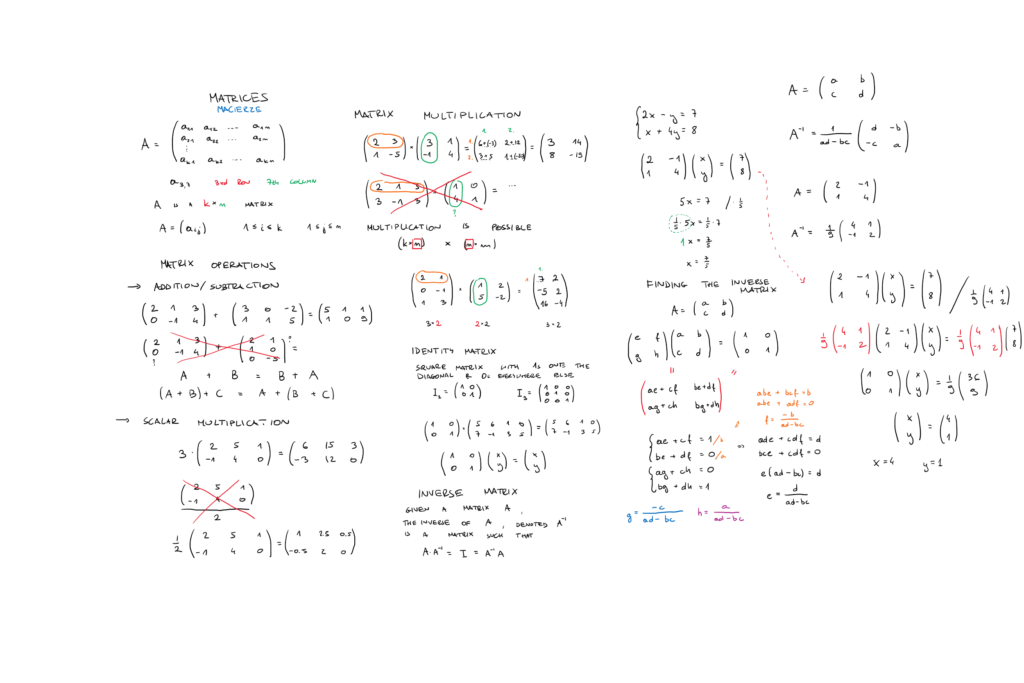 MATRICES
MACIERZE
A = ( a₁₁ a₁₂ ... a₁ₘ
a₂₁ a₂₂ ... a₂ₘ
⋮
aₖ₁ aₖ₂ ... aₖₘ )
a₃,₇ 3rd ROW 7th COLUMN
A IS A k×m MATRIX
A = (aᵢⱼ) 1≤i≤k 1≤j≤m
MATRIX OPERATIONS
→ ADDITION/SUBTRACTION
( 2 1 3 ) + ( 3 0 -2 ) = ( 5 1 1 )
( 0 -1 4 ) ( 1 1 5 ) ( 1 0 9 )
( 2 1 3 ) + ( 2 1 ) ?=
( 0 -1 4 ) ( 1 0 )
? ( 0 -5 )
A + B = B + A
(A+B)+C = A+(B+C)
→ SCALAR MULTIPLICATION
3 · ( 2 5 1 ) = ( 6 15 3 )
( -1 4 0 ) ( -3 12 0 )
( 2 5 1 )
( -1 4 0 )
2
½ ( 2 5 1 ) = ( 1 2.5 0.5 )
( -1 4 0 ) ( -0.5 2 0 )
MATRIX MULTIPLICATION
1. 2.
( 2 3 ) · ( 3 1 ) = 1. ( 6+(-3) 2+12 ) = ( 3 14 )
( 1 -5 ) ( -1 4 ) 2. ( 3+5 1+(-20) ) ( 8 -19 )
( 2 1 3 ) · ( 1 0 ) = ...
( 3 -1 3 ) ( 4 1 )
?
MULTIPLICATION IS POSSIBLE
(k×n) × (n×m)
1
( 2 1 ) · ( 1 2 ) = 1 ( 7 2 )
( 0 -1 ) ( 5 -2 ) ( -5 2 )
( 1 3 ) ( 16 -4 )
3×2 2×2 3×2
IDENTITY MATRIX
SQUARE MATRIX WITH 1s ONTO THE
DIAGONAL & 0s EVERYWHERE ELSE
I₂ = ( 1 0 ) I₃ = ( 1 0 0 )
( 0 1 ) ( 0 1 0 )
( 0 0 1 )
( 1 0 ) · ( 5 6 1 0 ) = ( 5 6 1 0 )
( 0 1 ) ( 7 -1 3 5 ) ( 7 -1 3 5 )
( 1 0 ) ( x ) = ( x )
( 0 1 ) ( y ) ( y )
INVERSE MATRIX
GIVEN A MATRIX A,
THE INVERSE OF A, DENOTED A⁻¹
IS A MATRIX SUCH THAT
A·A⁻¹ = I = A⁻¹A
{ 2x - y = 7
{ x + 4y = 8
( 2 -1 ) ( x ) = ( 7 )
( 1 4 ) ( y ) ( 8 )
5x = 7 / · 1/5
1/5 · 5x = 1/5 · 7
1 x = 7/5
x = 7/5
FINDING THE INVERSE
MATRIX
A = ( a b )
( c d )
( e f ) ( a b ) = ( 1 0 )
( g h ) ( c d ) ( 0 1 )
" "
( ae+cf be+df )
( ag+ch bg+dh )
{ ae + cf = 1 /·b
{ be + df = 0 /·a
{ ag + ch = 0
{ bg + dh = 1
g = -c/(ad-bc) h = a/(ad-bc)
abe + bcf = b
abe + adf = 0
f = -b/(ad-bc)
or ade + cdf = d
bce + cdf = 0
e(ad-bc) = d
e = d/(ad-bc)
A = ( a b )
( c d )
A⁻¹ = 1/(ad-bc) ( d -b )
( -c a )
A = ( 2 -1 )
( 1 4 )
A⁻¹ = 1/9 ( 4 1 )
( -1 2 )
( 2 -1 ) ( x ) = ( 7 ) / 1/9 ( 4 1 )
( 1 4 ) ( y ) ( 8 ) ( -1 2 )
1/9 ( 4 1 ) ( 2 -1 ) ( x ) = 1/9 ( 4 1 ) ( 7 )
( -1 2 ) ( 1 4 ) ( y ) ( -1 2 ) ( 8 )
( 1 0 ) ( x ) = 1/9 ( 36 )
( 0 1 ) ( y ) ( 9 )
( x ) = ( 4 )
( y ) ( 1 )
x=4 y=1